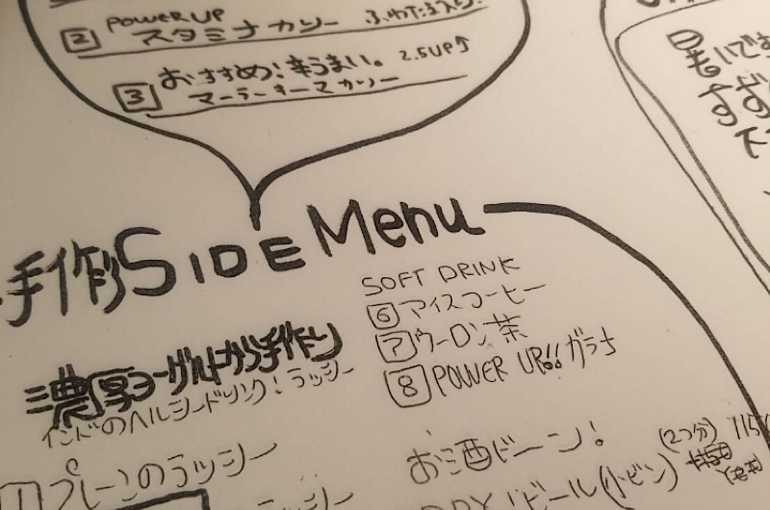 POWER UP
2 スタミナカリー
おすすめ!辛うまい。 2.5UP↑
3 マーラーキーマカリー
手作りSIDE Menu
SOFT DRINK
6 アイスコーヒー
7 ウーロン茶
8 POWER UP!! ガラナ
濃厚ヨーグルトから手作り
インドのヘルシードリンク!ラッシー
1 プレーンのラッシー
ラッシー
お酒ドーン!
(2つ分)
ビール(小ビン)
暑いです